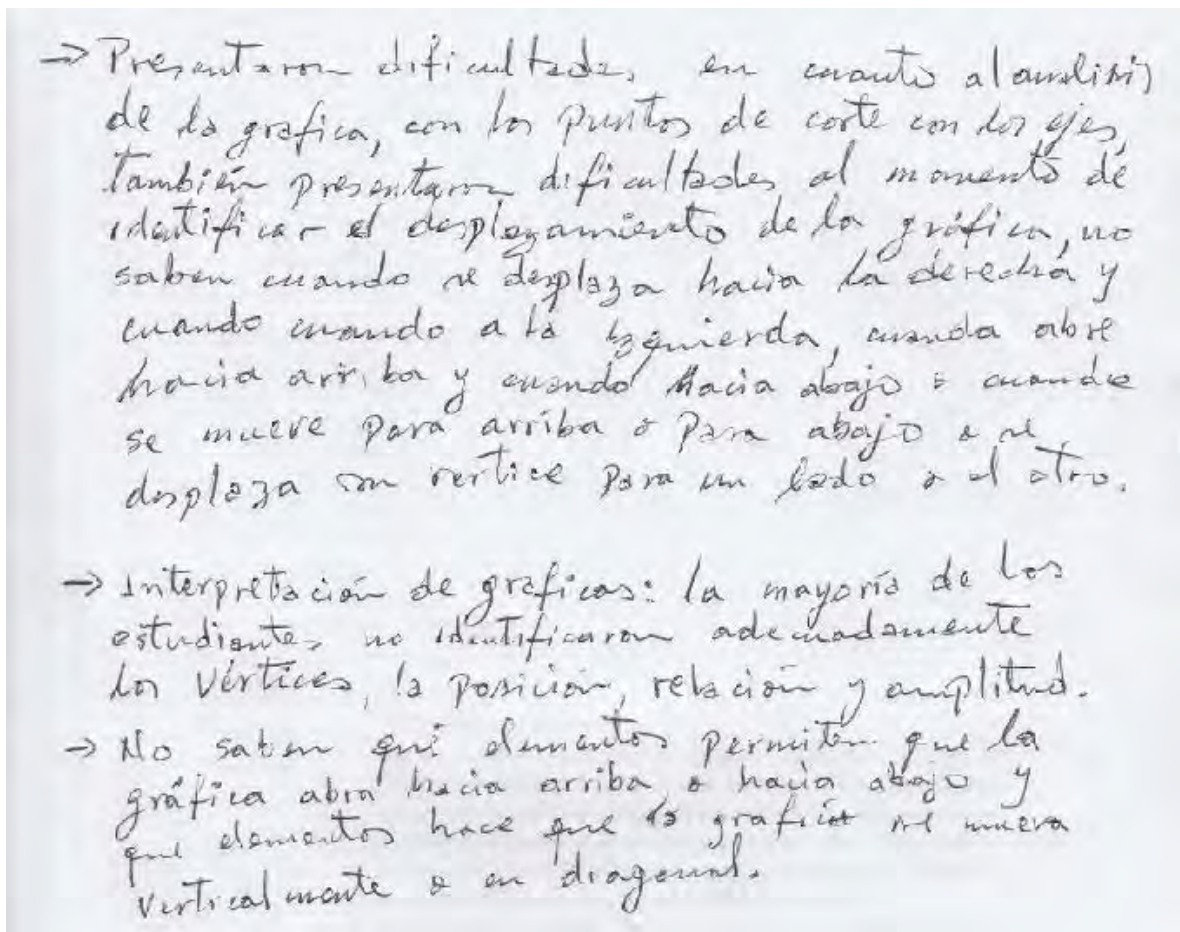 → Presentaron dificultades en cuanto al analisis
de la grafica, con los puntos de corte con los ejes,
también presentaron dificultades al momento de
identificar el desplazamiento de la gráfica, no
saben cuando se desplaza hacia la derecha y
cuando cuando a la izquierda, cuando abre
hacia arriba y cuando hacia abajo o cuando
se mueve para arriba o para abajo o se
desplaza su vertice para un lado o al otro.
→ Interpretación de graficas: la mayoría de los
estudiantes no identificaron adecuadamente
los vértices, la posición, relación y amplitud.
→ No saben qué elementos permiten que la
gráfica abra hacia arriba o hacia abajo y
que elementos hace que la grafica se mueva
verticalmente o en diagonal.